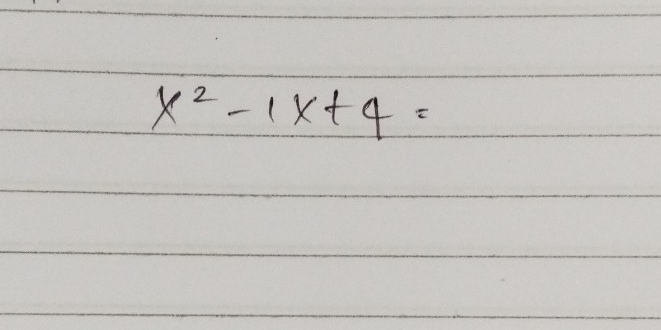 x² - 1x + 4 =